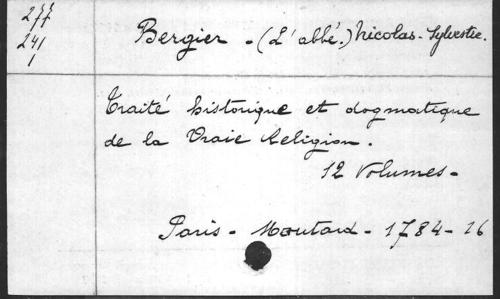 277
241
1
Bergier - (L'abbé.) Nicolas-Sylvestre.
Traité historique et dogmatique
de la Vraie Religion.
12 Volumes -
Paris - Moutard - 1784 - 16